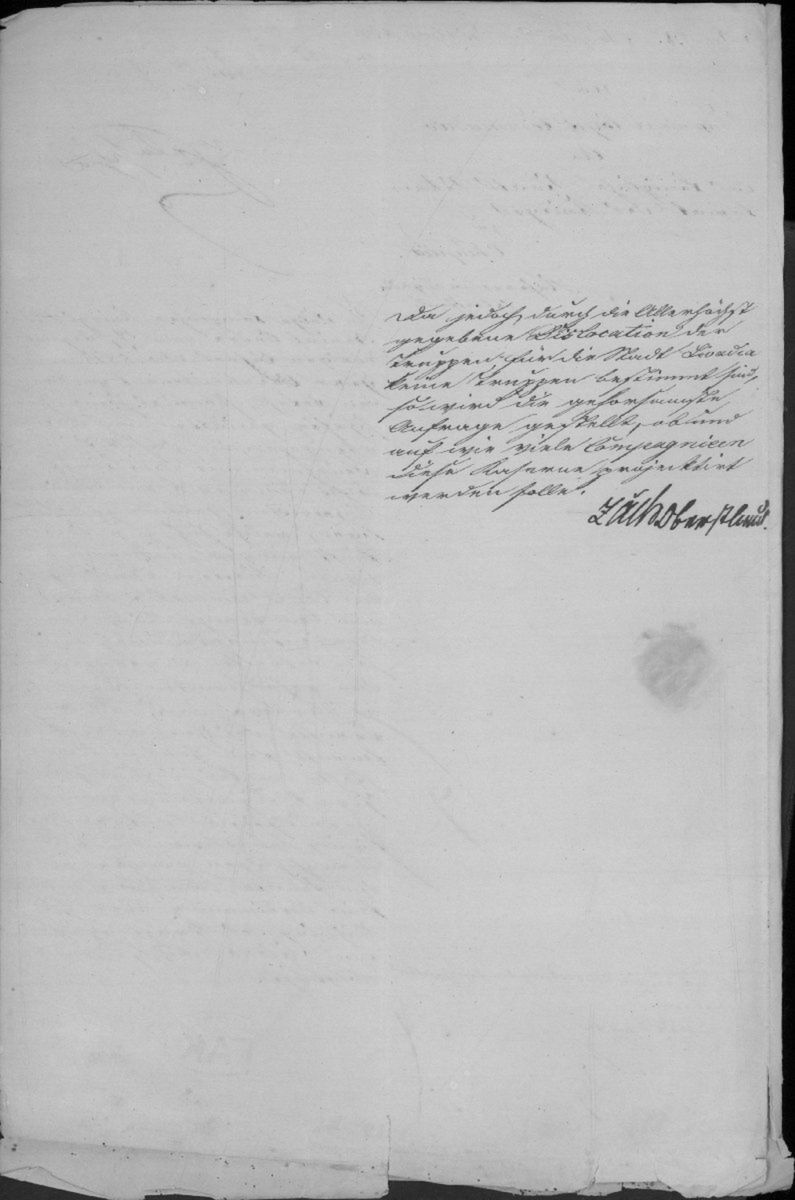 Da jedoch durch die Allerhöchst
gegebene Dislocation der
Truppen für die Stadt Livadia
keine Truppen bestimmt sind,
so wird die gehorsamste
Anfrage gestellt, ob und
auf wie viele Compagnieen
diese Kaserne projektirt
werden solle.
Zäch Oberstlieut.